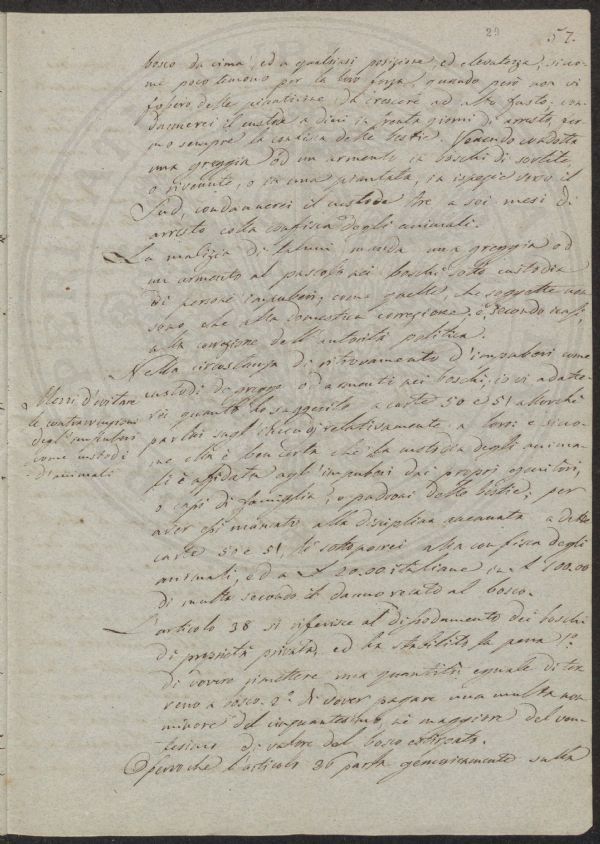 29
57.
bosco da cima, ed a qualsiasi posizione, ed elevatezza, sicco-
me poco temono per la loro forza, quando però non vi
fossero delle pianticine da crescere ad alto fusto, con-
dannerei il custode a dieci in trenta giorni di arresto, fer-
mo sempre la confisca delle bestie. Venendo condotta
una greggia od un armento in boschi di sortite,
o rivenute, o in una piantata, in ispecie verso il
Sud, condannerei il custode tre a sei mesi di
arresto colla confisca degli animali.
La malizia di taluni manda una greggia od
un armento al pascolo nei boschi sotto custodia
di persone impuberi, come quelle che soggette non
sono che alla domestica correzione, o, secondo casi,
alla correzione dell'autorità politica.
Nella circostanza di ritrovamento d'impuberi come
custodi di gregge od armenti nei boschi, io vi adatte-
rei quanto ho suggerito a carte 50 e 51 allorchè
parlai sugl' relativamente a loro: e sicco-
me ella è ben certa che la custodia degli anima-
li è affidata agl'impuberi dai propri genitori,
o capi di famiglia, o padroni delle bestie, per
aver essi mancato alla disciplina a dette
carte 50 e 51, li sottoporrei alla confisca degli
animali, ed a £ 20.00 italiane in £ 100.00
di multa secondo il danno recato al bosco.
Mezzi d'evitare
le contravvenzioni
degli impuberi
come custodi
d'animali
L'articolo 38 si riferisce al dissodamento dei boschi
di proprietà privata, ed ha stabilito la pena 1.º
di dovere rimettere una quantità eguale di ter-
reno a bosco. 2.º di dover pagare una multa non
minore del cinquantesimo, nè maggiore del ven-
tesimo di valore del bosco estirpato.
Sperochè l'articolo 36 parla genericamente sulla